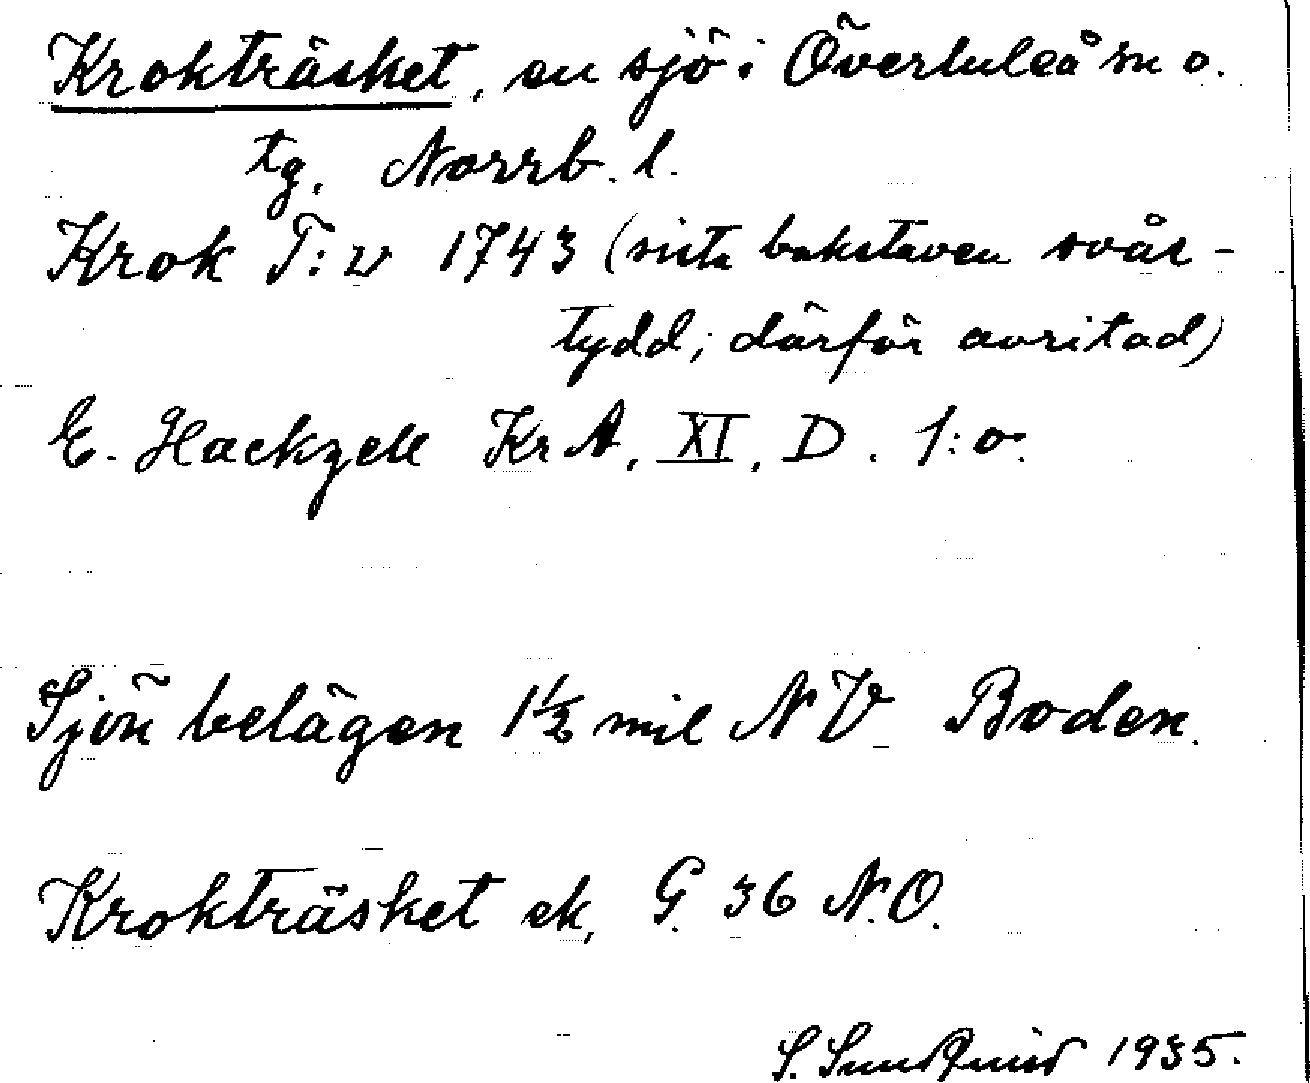 Krokträsket, en sjö i Överluleå sn o.
tg. Norrb. l.
Krok T:v 1743 (sista bokstaven svår-
tydd, därför avritad)
E. Hackzell KrA, XI, D. 1:o.
Sjön belägen 1½ mil NV Boden.
Krokträsket ek, G. 36 N.O.
S. Sundqvist 1935.